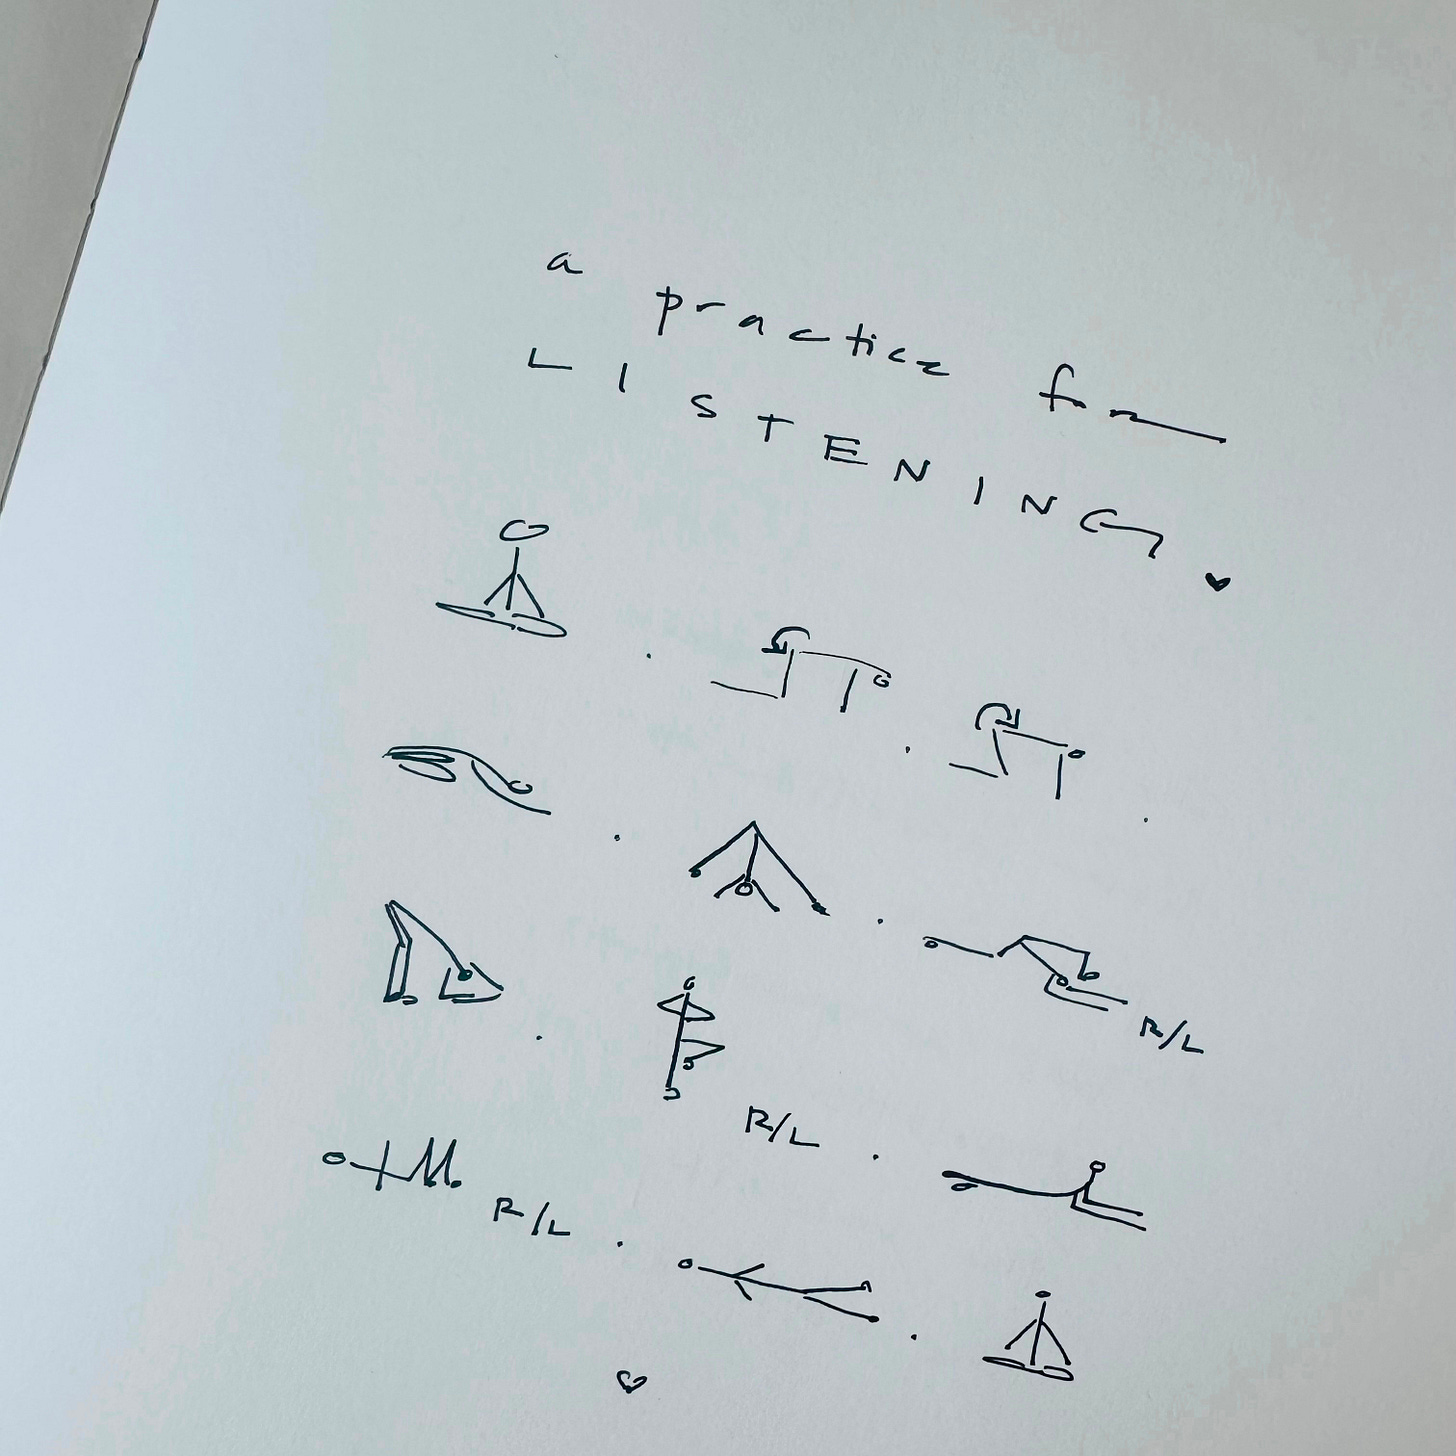 a practice for
LISTENING
R/L
R/L
R/L